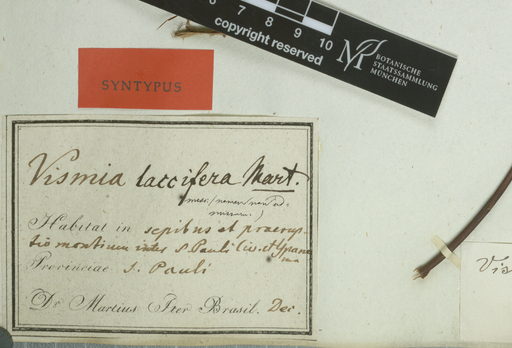 6 7 8 9 10
copyright reserved
BOTANISCHE
STAATSSAMMLUNG
MÜNCHEN
SYNTYPUS
Vismia laccifera Mart.
Habitat in sepibus et praerup-
tis montium inter S. Pauli civ. et
Provinciae S. Pauli
Dr. Martius Iter Brasil. Dec.
Vis